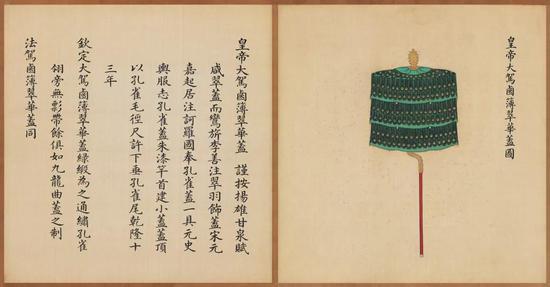 皇帝大駕鹵薄翠華蓋圖
皇帝大駕鹵薄翠華蓋 謹按揚雄甘泉賦
咸翠蓋而鸞旂李善注翠羽飾蓋宋元
嘉起居注訶羅國奉孔雀蓋一具元史
輿服志孔雀蓋朱漆竿首建小蓋蓋頂
以孔雀毛徑尺許下垂孔雀尾乾隆十
三年
欽定大駕鹵薄翠華蓋綠緞為之通繡孔雀
翎旁無彩帶餘俱如九龍曲蓋之制
法駕鹵薄翠華蓋同